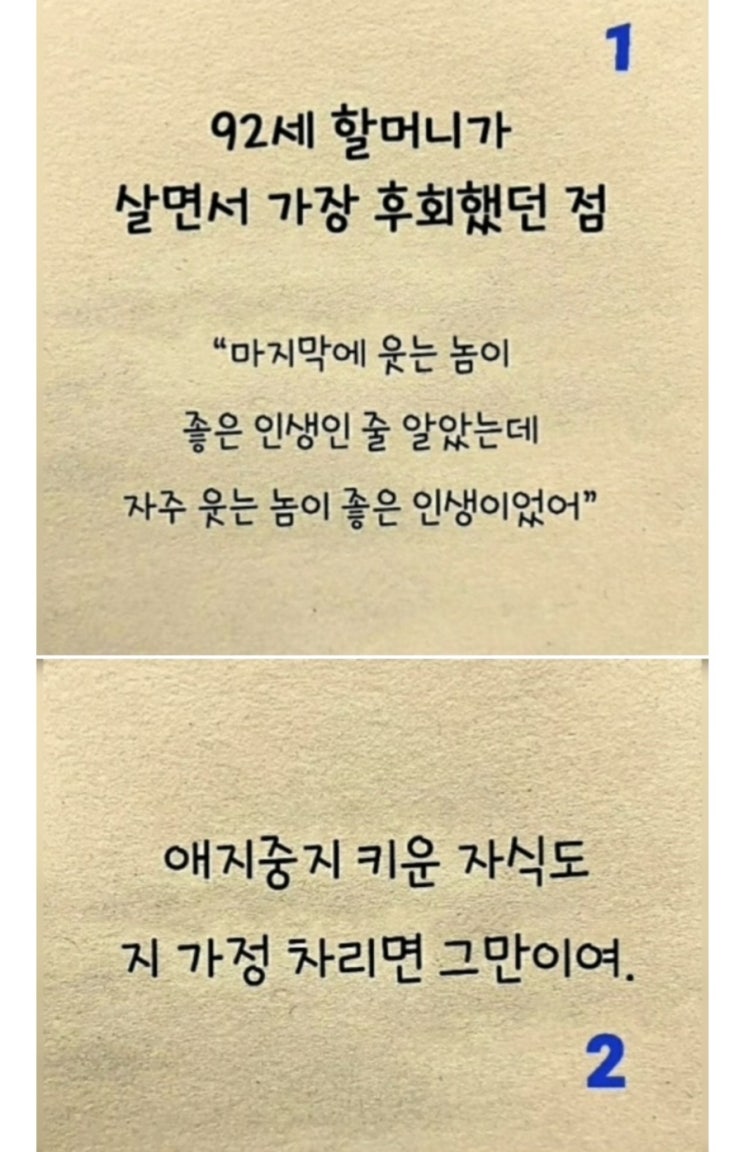 1
92세 할머니가
살면서 가장 후회했던 점
“마지막에 웃는 놈이
좋은 인생인 줄 알았는데
자주 웃는 놈이 좋은 인생이었어”
애지중지 키운 자식도
지 가정 차리면 그만이여.
2